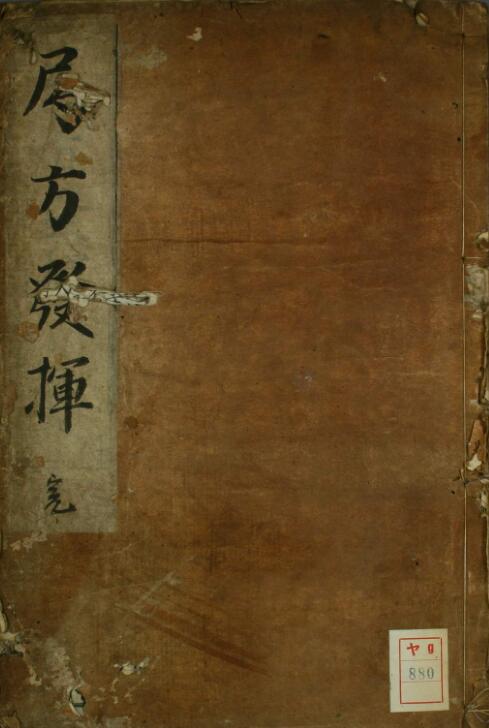 局方發揮
完
ヤ 9
880